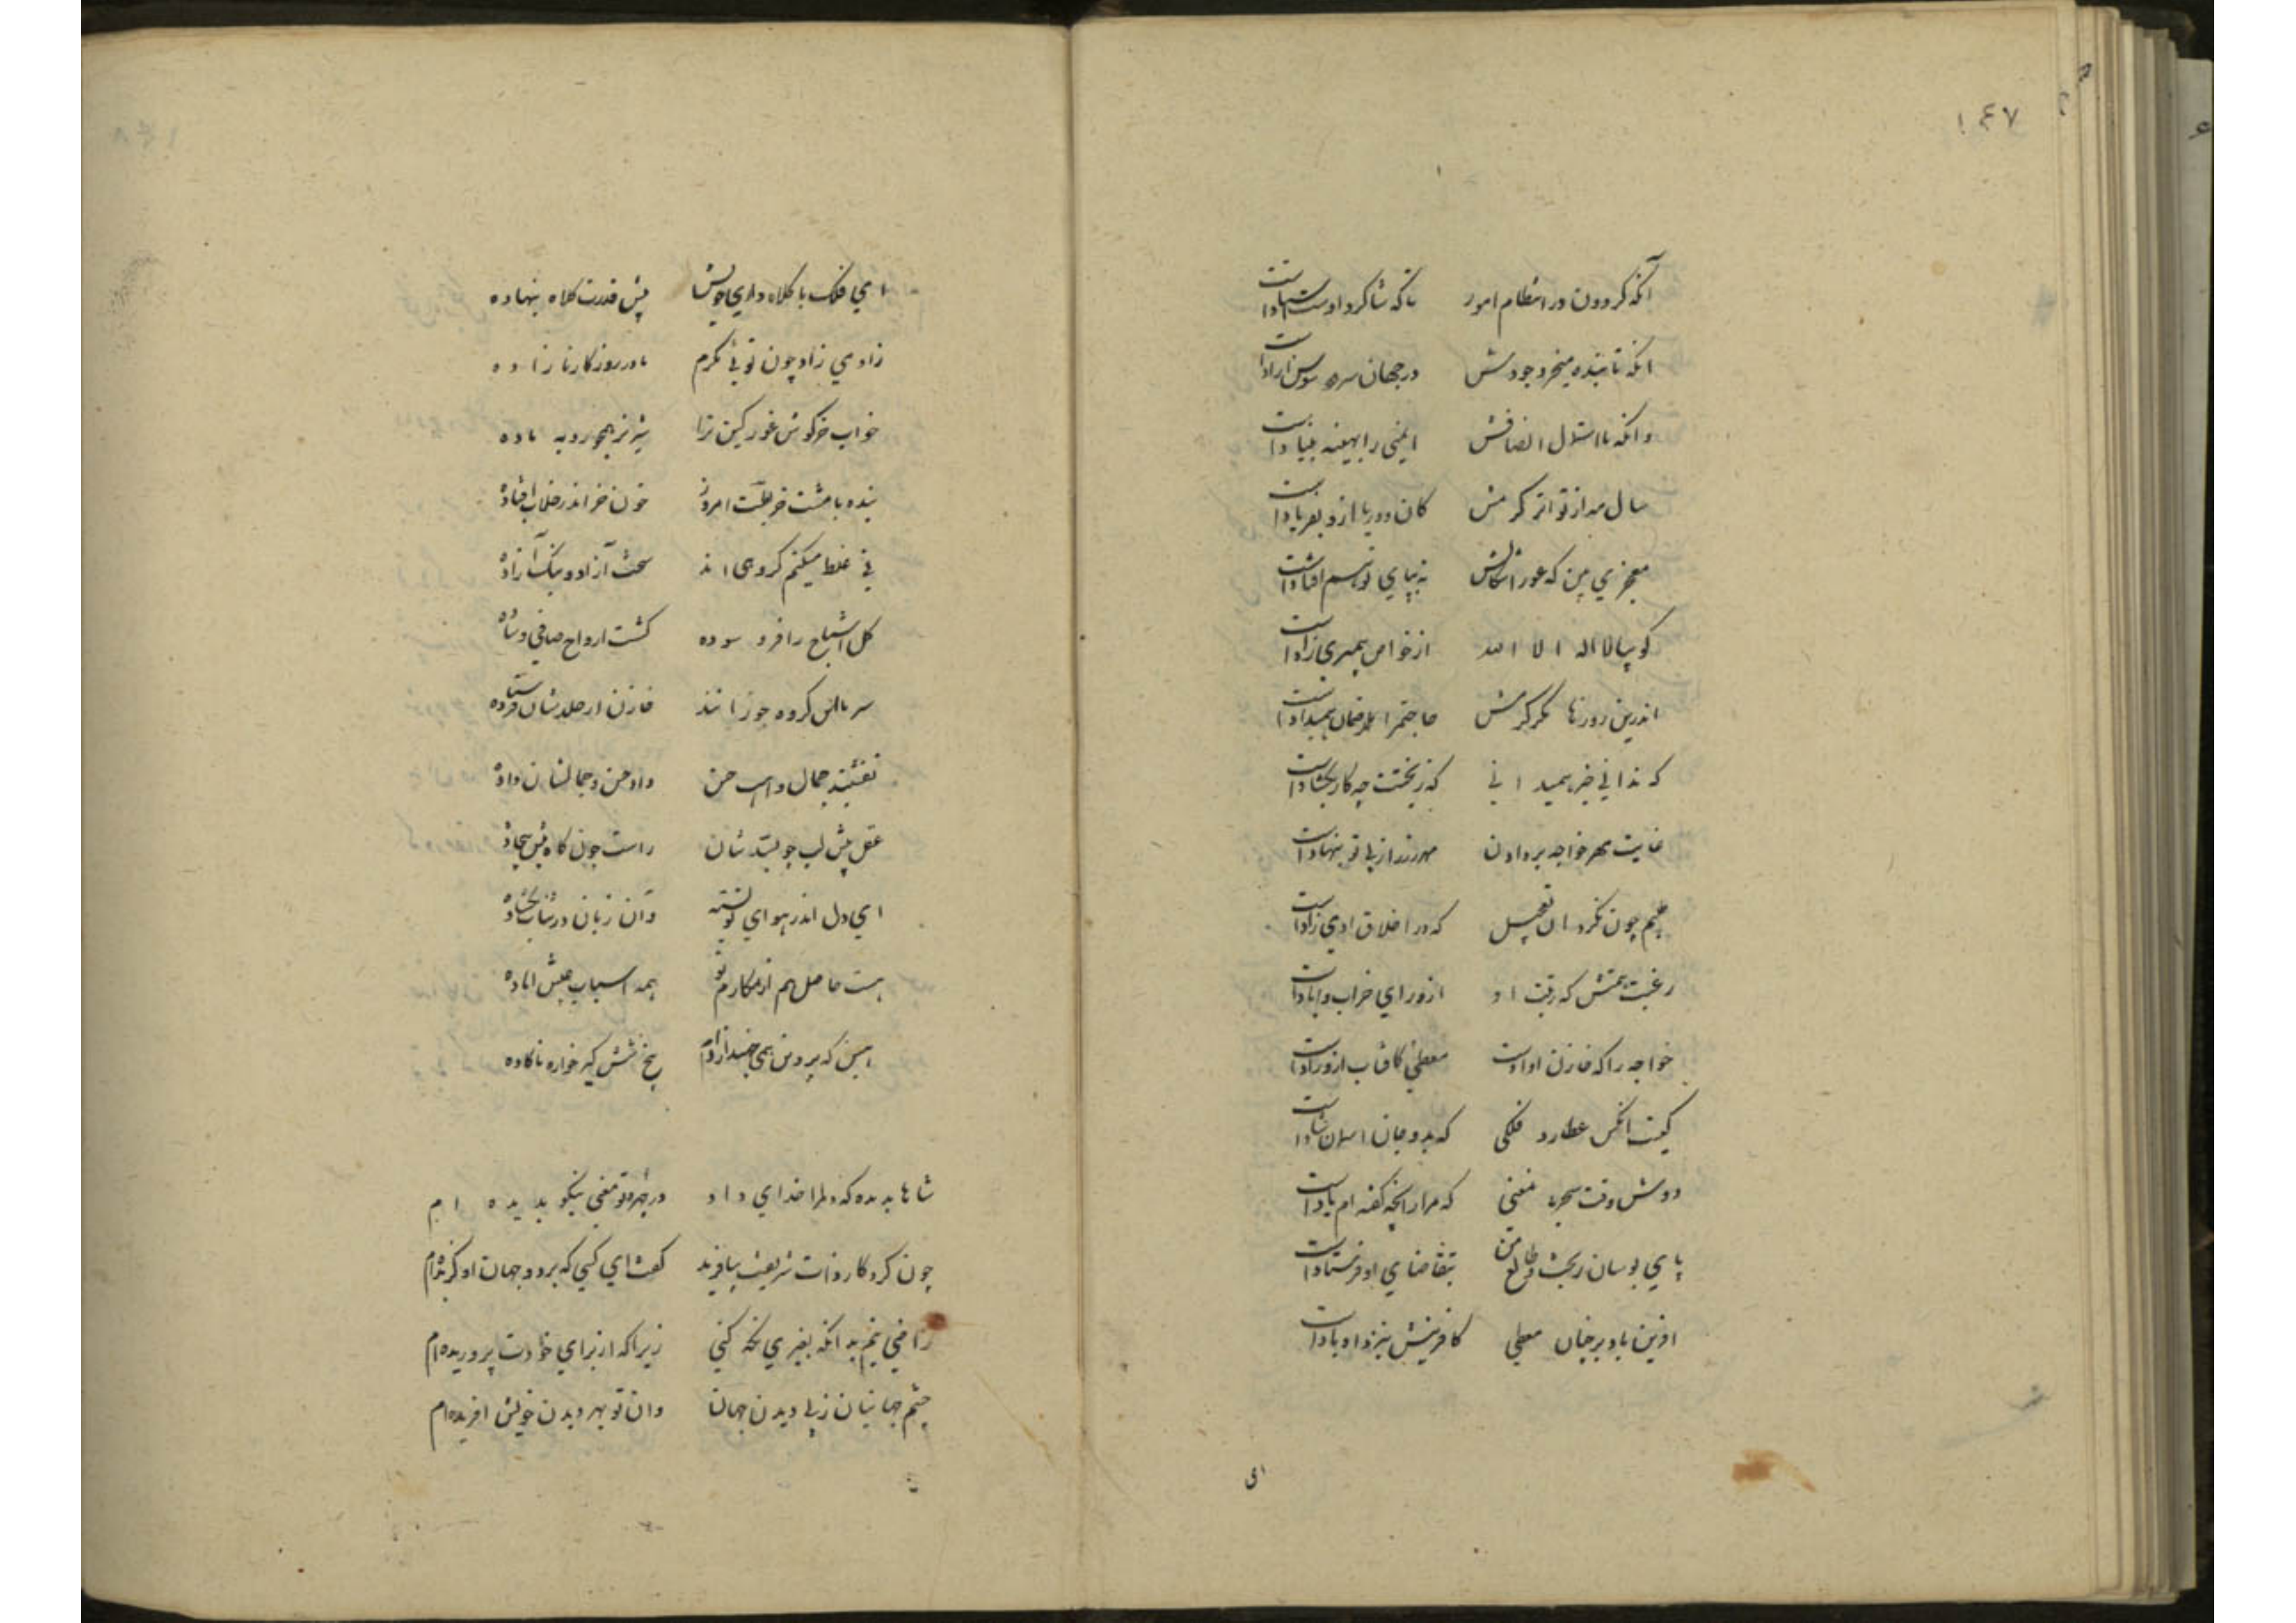 ١٤٧
آنکه گردون در انتظام امور تا که شاگرد اوست استادست
انکه تا بنده میخرد جودش در جهان سرو و سوسن ازادست
وانکه با استدلال انصافش ایمنی را بهینه بنیادست
سال و مه از تواتر کرمش کان و دریا ازو بفریادست
معجزی بین که غور اشکالش نه بپای توسم افتادست
گوییا لا اله الا الله از خواص پیمبری زادست
اندرین روزها مگر کرمش حاجتم را
که ندانی خبر همید انی که زبختت چه کار بگشادست
غایت مهر خواجه بر دادن مهر زر از پی تو بنهادست
چشم چون نکرد ان تعجیل که در اخلاق ادمی زادست
رغبت همتش که رتبت او از ورای خراب و ابادست
خواجه را که خازن او اوست معطی کافتاب ازو رادست
کیست انکس عطارد فلکی که بدو جان اسمان شادست
دوش وقت سحر با معنی که مرا زانچه گفته ام یادست
پای بوسان ز بخت و طالع من بتقاضای او فرستادست
افرین باد بر چنان معطی کافرینش نیز داد بادست
ای
ای فلک با کلاه داری خویش پیش قدرت کلاه بنهاده
زادمی زاد چون تویی نکرم مادر روزگار نا زاده
خواب خرگوش غور کین ترا شیر نر همچو روبه ماده
بنده با مشت خربطست امروز چون خر اندر خلاب افتاده
نی غلط میکنم گروهی اند سخت آزاد و نیک آزاده
کل اشباح را فرو سوده گشت ارواح صافی و ساده
سر بالین گروه جوزا اند خازن از خلدشان فرستاده
نقشبند جمال واهب حسن داد حسن و جمالشان داده
عقل پیش لب چو بسدشان راست چون کاه پیش بیجاده
ای دل اندر هوای تو بسته وان زبان در ثنات بگشاده
هست حاصل هم از مکارم تو همه اسباب عیش اماده
یخ
شاها بدیده که دلم را خدای داد در چهره تو معنی نیکو بدیده ام
چون کردگار ذات شریفت بیافرید گفت ای کسی که بر دو جهانت او گزیده ام
راضی نیم بد انکه بغیری نگه کنی زیرا که از برای خودت پروریده ام
چشم جهانیان ز پی دیدن جهان وان تو بهر دیدن خویش افریده ام